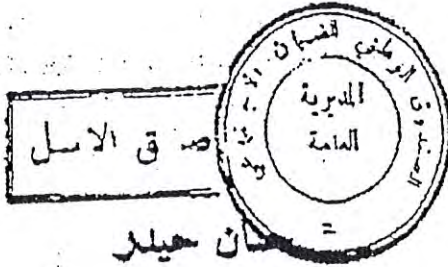 الصندوق الوطني للضمان الاجتماعي
المديرية
العامة
صدق الاصل
حيدر